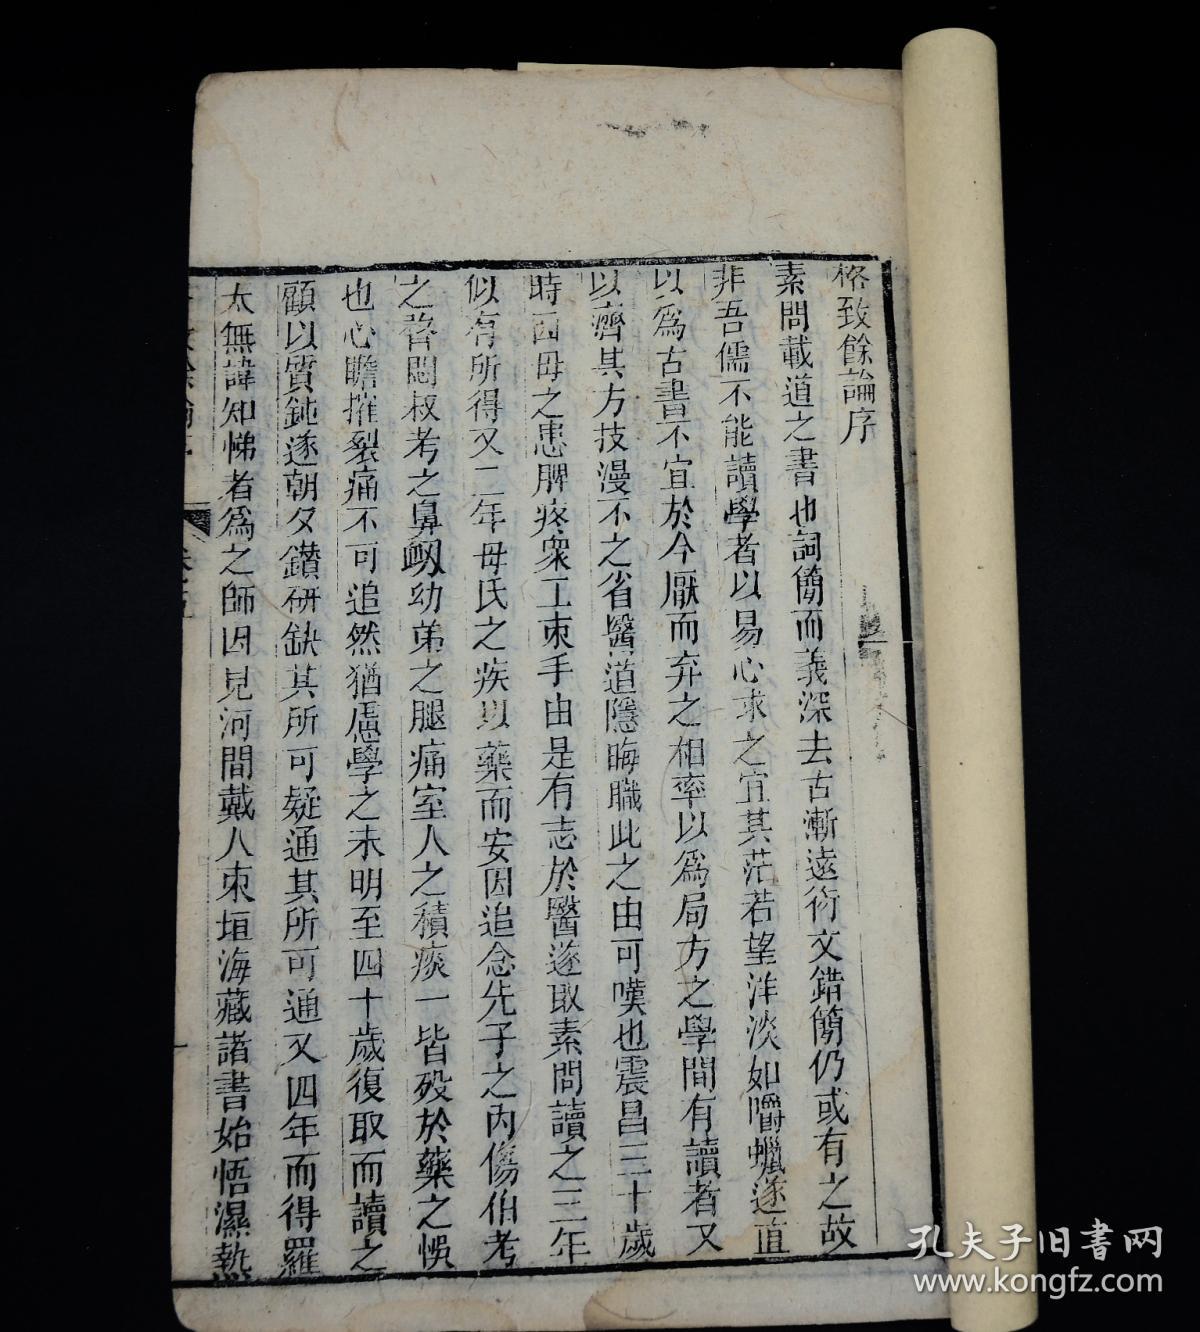 格致餘論序
素問載道之書也詞簡而義深去古漸遠衍文錯簡仍或有之故
非吾儒不能讀學者以易心求之宜其茫若望洋淡如嚼蠟遂直
以爲古書不宜於今厭而弃之相率以爲局方之學間有讀者又
以濟其方技漫不之省醫道隱晦職此之由可嘆也震昌三十歲
時因母之患脾疼衆工束手由是有志於醫遂取素問讀之三年
似有所得又二年母氏之疾以藥而安因追念先子之內傷伯考
之瞀悶叔考之鼻衂幼弟之腿痛室人之積痰一皆殁於藥之悞
也心膽摧裂痛不可追然猶慮學之未明至四十歲復取而讀之
顧以質鈍遂朝夕鑚研缺其所可疑通其所可通又四年而得羅
太無諱知悌者爲之師因見河間戴人東垣海藏諸書始悟濕熱
孔夫子旧書网
www.kongfz.com